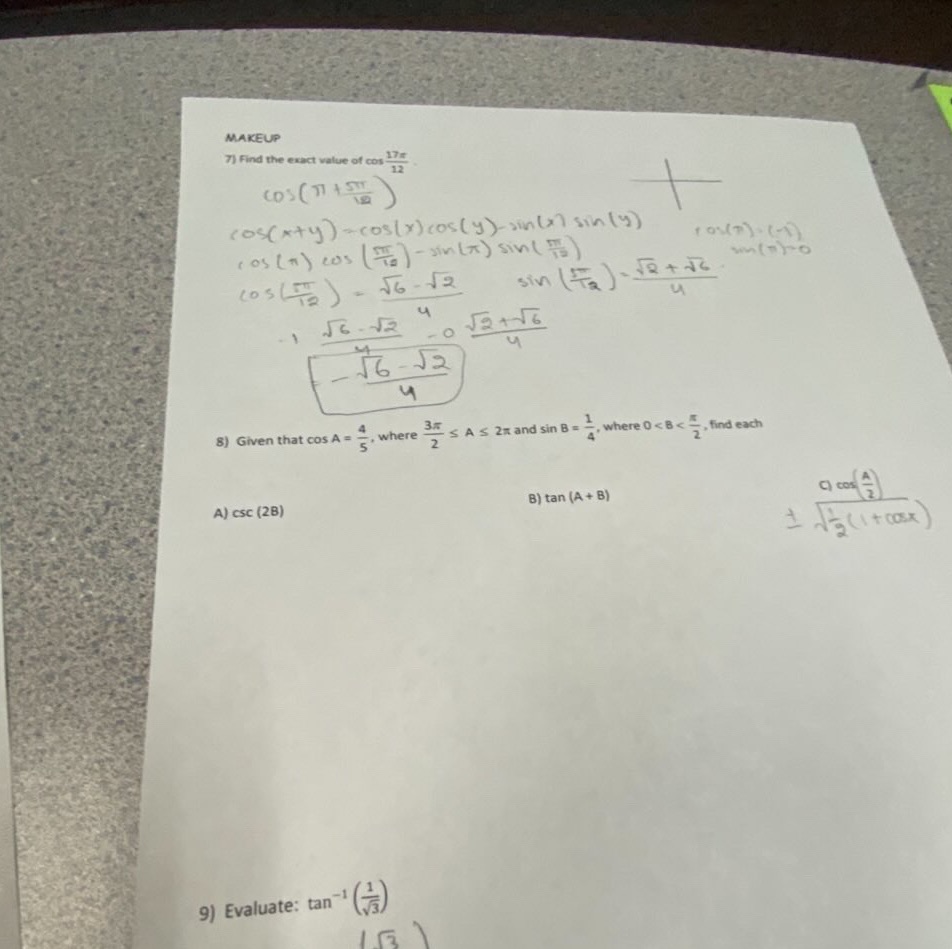 MAKEUP
7) Find the exact value of cos 17π/12 .
cos(π + 5π/12)
cos(x+y) = cos(x) cos(y) - sin(x) sin(y)
cos(π) = (-1)
sin(π) = 0
cos(π) cos (5π/12) - sin(π) sin(5π/12)
cos(5π/12) = √6 - √2/4 sin(5π/12) = √2 + √6/4
-1 √6 - √2/4 - 0 √2 + √6/4
- √6 - √2/4
8) Given that cos A = 4/5, where 3π/2 ≤ A ≤ 2π and sin B = 1/4, where 0 < B < π/2, find each
A) csc (2B)
B) tan (A + B)
C) cos(A/2)
± √1/2(1 + cosx)
9) Evaluate: tan⁻¹ (1/√3)
(√3)